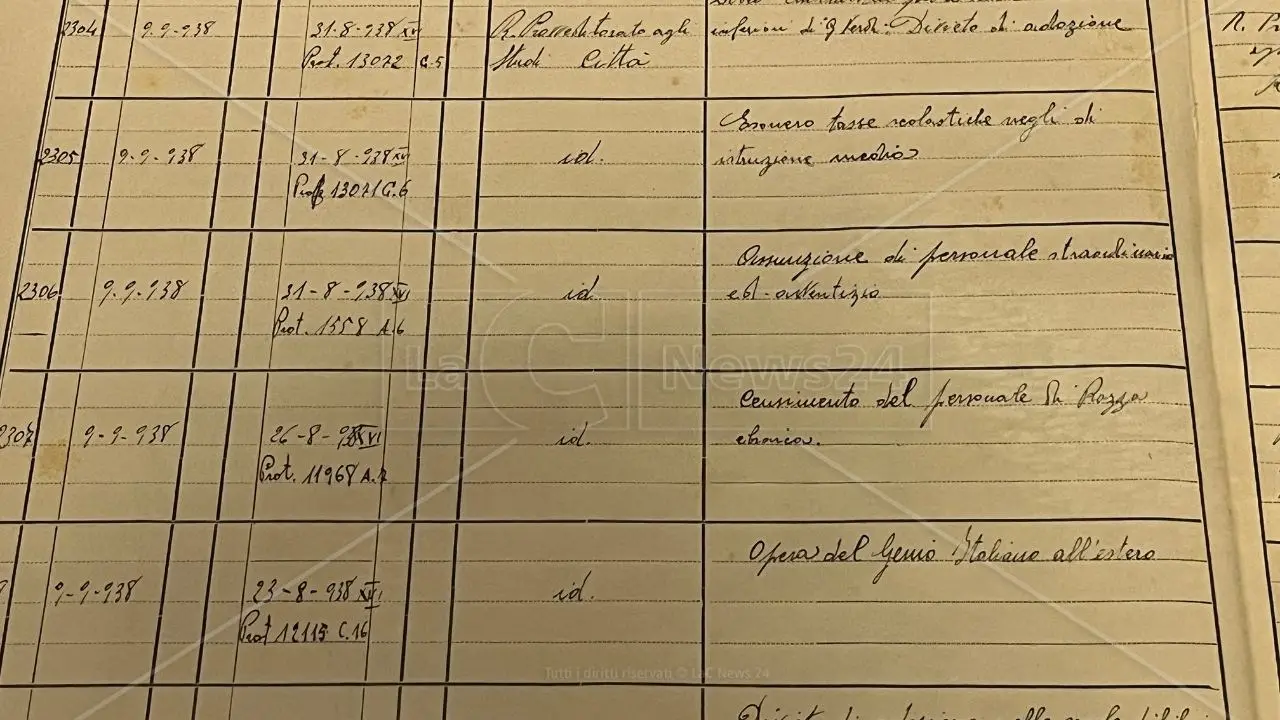 2304 9-9-938 31-8-938 XVI R. Provveditorato agli inferiori di G. Verdi. Divieto di adozione
Prot. 13022 C.5 Studi Città
Esonero tasse scolastiche negli di
2305 9-9-938 31-8-938 XVI id. istruzione media
Prot 13021 C.6
Assunzione di personale straordinario
2306 9-9-938 31-8-938 XVI id. ed avventizio
Prot. 1558 A.6
Censimento del personale di Razza
2307 9-9-938 26-8-938 XVI id. ebraica.
Prot. 11968 A.2
Opera del Genio Italiano all'estero
9-9-938 23-8-938 XVI id.
Prot 12115 C.16
LaC News24
Tutti i diritti riservati © LaC News 24